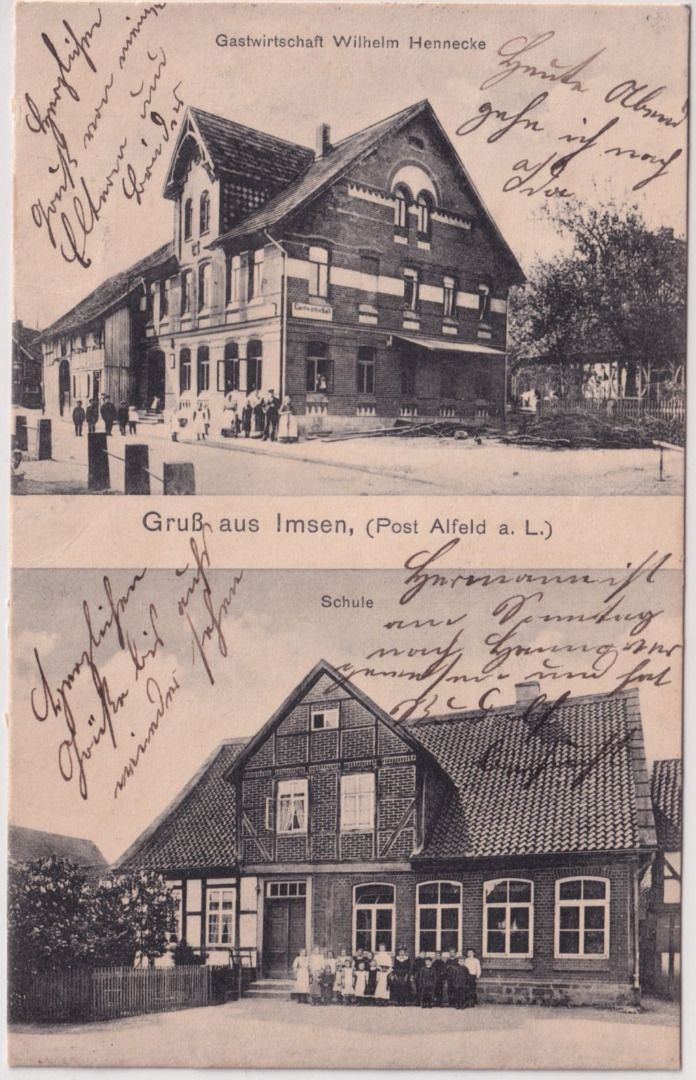 Gastwirtschaft Wilhelm Hennecke
Herzlichen
Gruß von meine
Eltern und
Brüder
Heute Abend
gehe ich nach
Gastwirtschaft
Gruß aus Imsen, (Post Alfeld a. L.)
Schule
Herzlichen
Grüße bis auf
wieder sehen
Hermann ist
am Sonntag
nach Hannover
gewesen und hat